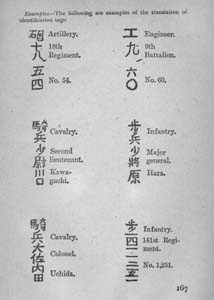 Examples.—The following are examples of the translation of
identification tags:
砲 Artillery.
十 18th
八 Regiment.
五
四 No. 54.
工 Engineer.
九 9th
Battalion.
六
〇 No. 60.
騎
兵 Cavalry.
少 Second
尉 lieutenant.
川 Kawa-
口 guchi.
步
兵 Infantry.
少 Major
將 general.
原 Hara.
騎
兵 Cavalry.
大
佐 Colonel.
内
田 Uchida.
步 Infantry.
一 141st Regi-
四 ment.
一
一
二
五 No. 1,251.
一
167